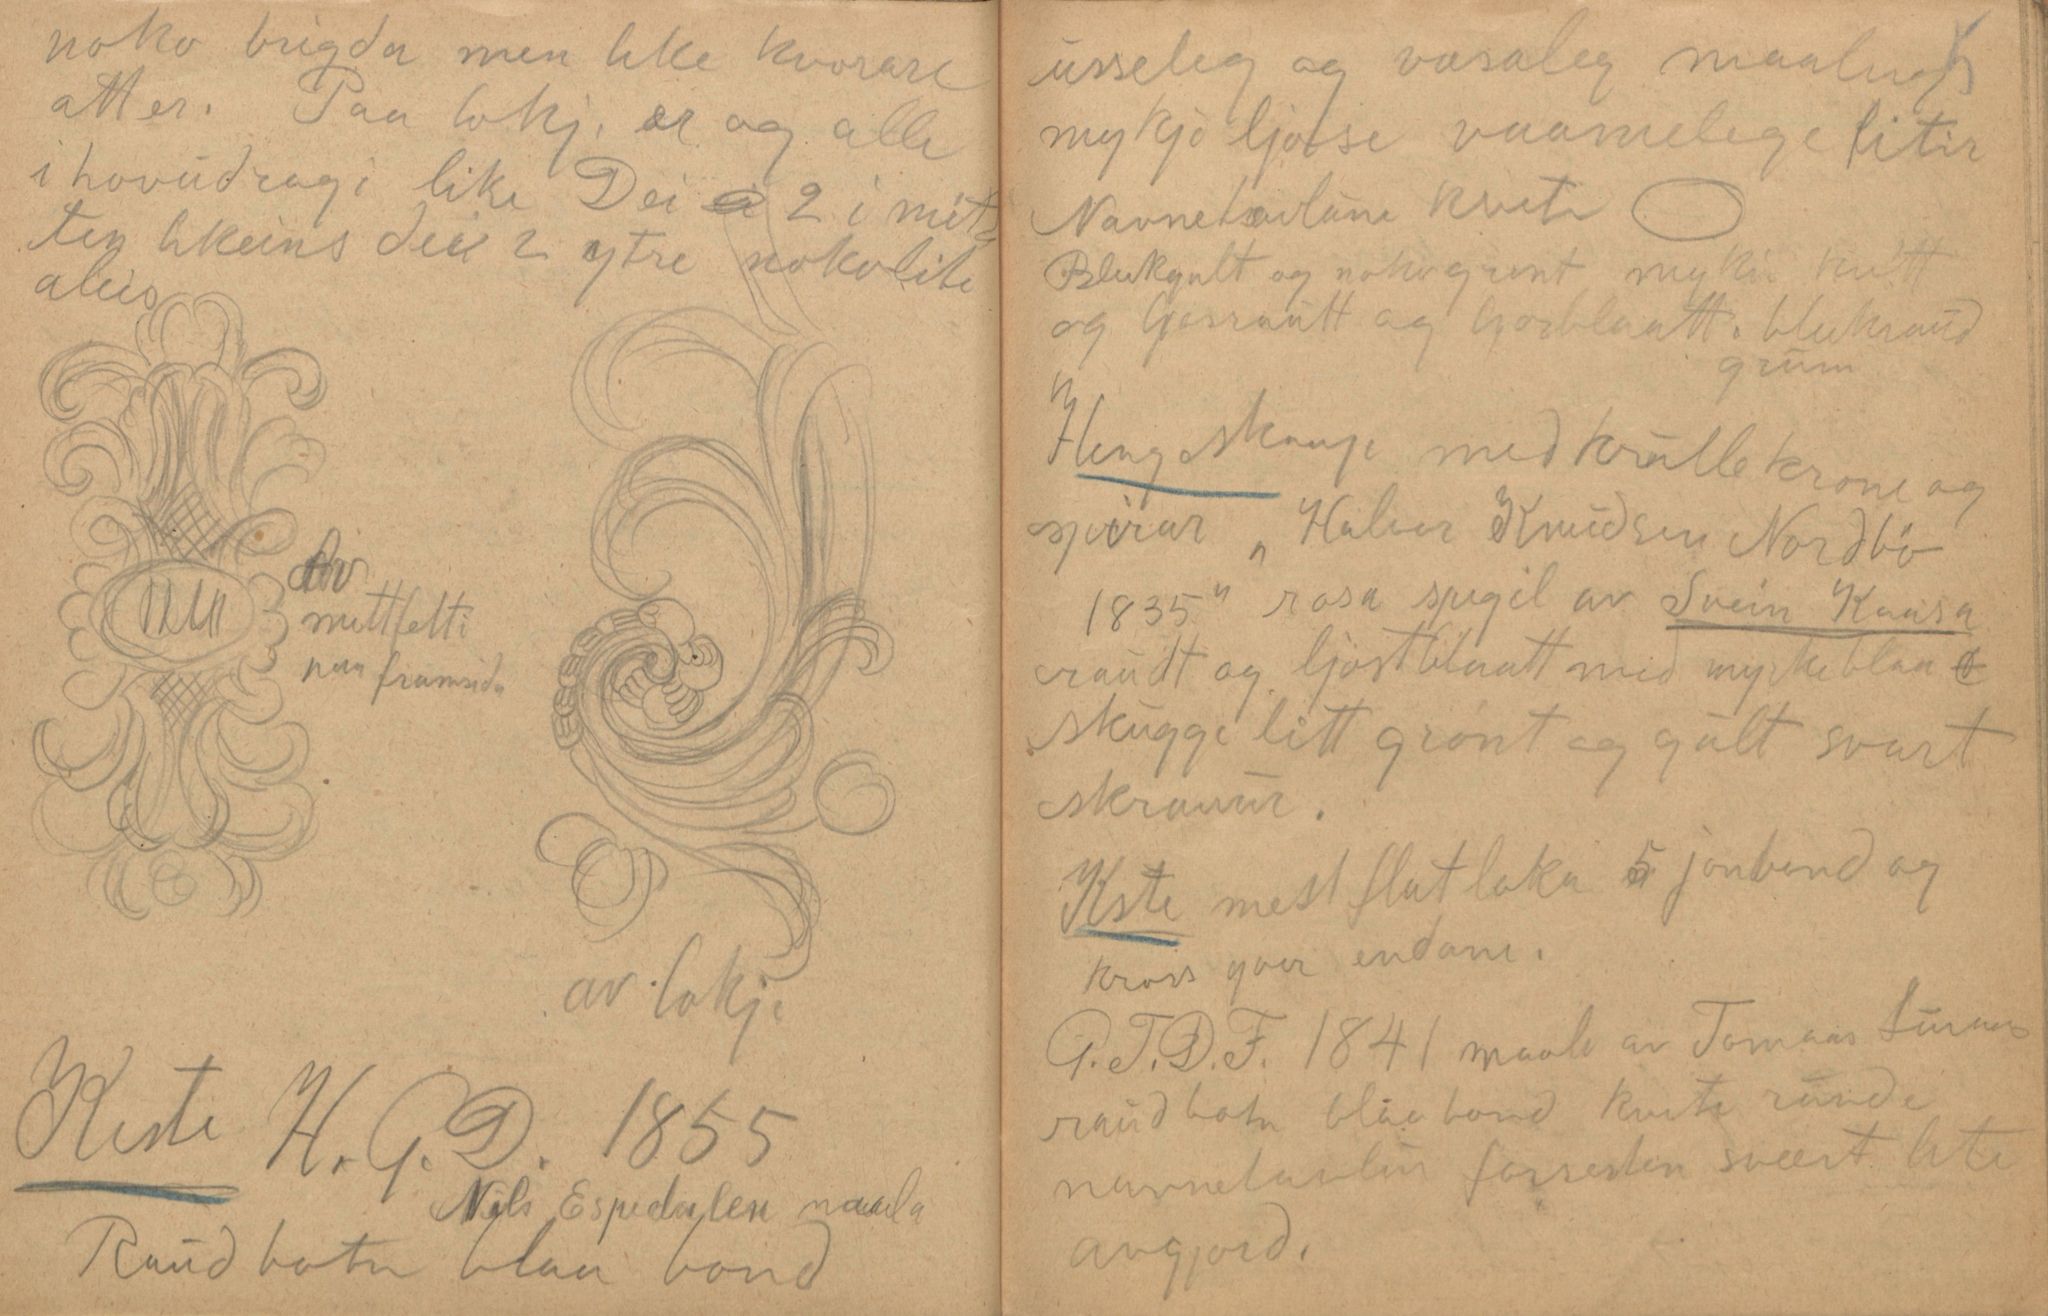 noko brigda men like kvorare
atter. Paa lokj. er og alle
i hovudragi like Dei 2 i mit
ten likeins dei 2 ytre noko lite
aleis
Av
mittfelti
paa framsida
av lokje
Kiste H. G. D. 1855
Nils Espedalen maala
Raud botn blaa bond
usseleg og vasaleg maaling
mykje ljose vaamelege litir
Navnetavlune kvite
Bleikgult og noko grønt mykje kvitt
og ljosraudt og ljosblaatt. bleikraud
grunn
Heng skaap med krulle krone og
spirar „Halvor Knudsen Nordbö
1835" rosa spegil av Svein Kaasa
raudt og ljost blaatt med myrkeblaa
skugge litt grønt og gult svart
skravur.
Kste mest flat loka 5 jonbond og
kross yver endane.
G.T.D.F. 1841 maala av Tomaas Luraas
raud botn blaa bond kvite runde
navnetavlur forresten svært lite
avgjord.